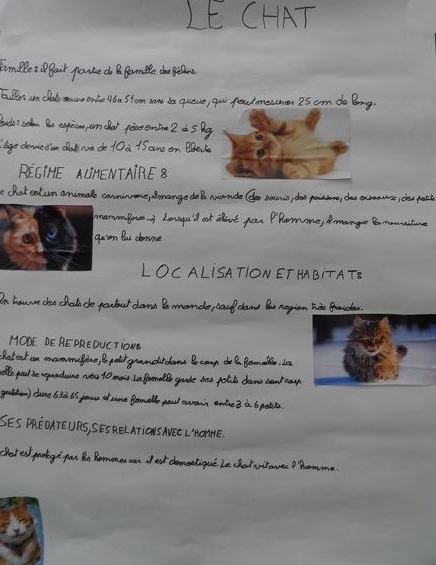 LE CHAT
Famille : il fait partie de la famille des félins.
Taille : un chat mesure entre 46 à 51 cm sans sa queue, qui peut mesurer 25 cm de long.
Poids : selon les espèces, un chat pèse entre 2 à 5 kg
L'âge de vie d'un chat va de 10 à 15 ans en liberté
RÉGIME ALIMENTAIRE :
Le chat est un animale carnivore, il mange de la viande (des souris, des poissons, des oiseaux, des petits
mammifères...) Lorsqu'il est élevé par l'homme, il mange la nourriture
qu'on lui donne
LOCALISATION ET HABITAT :
On trouve des chats de partout dans le monde, sauf dans les region très froides.
MODE DE REPRODUCTION :
chat est un mammifère, le petit grandit dans le corp de la femelle. La
elle peut se reproduire vers 10 mois. La femelle garde ses petits dans son corp
(gestation) dure 63 à 65 jours et une femelle peut avoir entre 3 à 6 petits.
SES PRÉDATEURS, SES RELATIONS AVEC L'HOMME.
chat est protégé par les hommes car il est domestiqué. Le chat vit avec l'homme.